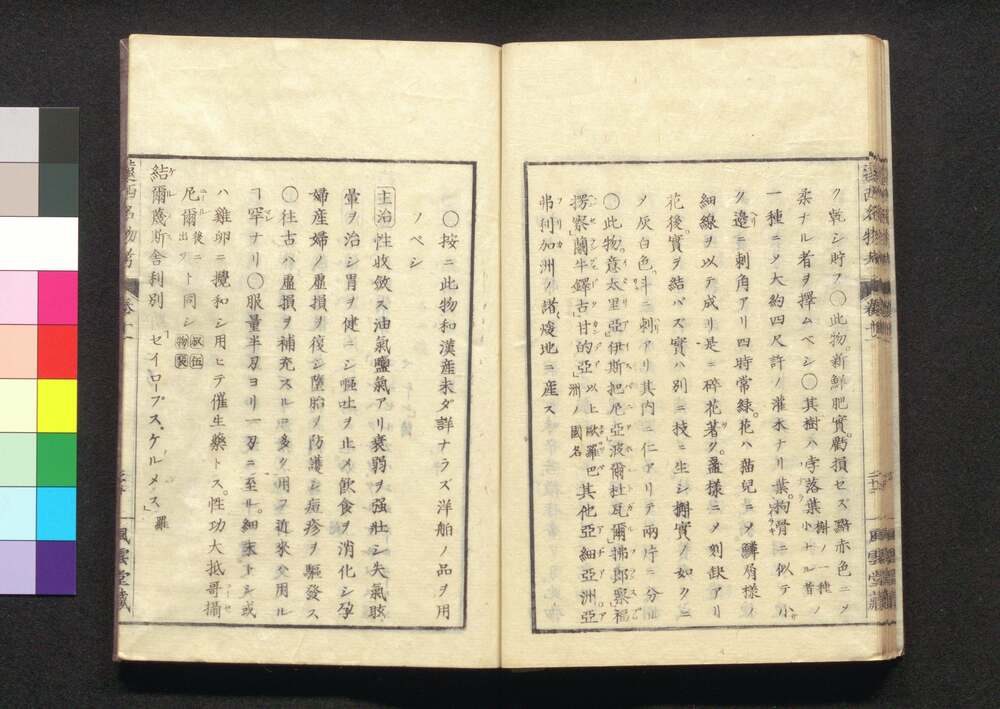 ク乾シ貯フ〇此物新鮮肥實虧損セズ黯赤色ニメ
柔ナル者ヲ擇ムベシ〇其樹ハ李落葉樹ノ一種ノ小ナル者
一種ニメ大約四尺許ノ灌木ナリ葉枸骨ニ似テ小
ク邉ニ刺角アリ四時常緑花ハ猫兒ニメ鱗屑様ノ
細線ヲ以テ成リ是ニ碎花著ク盞様ニメ刻缺アリ
花後實ヲ結バズ實ハ別ニ技ニ生シ槲實ノ如クニ
メ灰白色斗ニ刺アリ其内ニ仁アリテ兩片ニ分ル
〇此物意太里亞伊斯把尼亞波爾杜瓦爾拂郎察福
楞察蘭牛鐸古甘的亞以上歐羅巴洲ノ國名其他亞細亞洲亞
弗利加洲ノ諸煖地ニ産ス
遠西名物考
卷十一
風雲堂藏
〇按ニ此物和漢産未ダ詳ナラズ洋舶ノ品ヲ用
ノベシ
主治性收斂ス油氣鹽氣アリ衰弱ヲ强壯シ失氣眩
暈ヲ治シ胃ヲ健ニシ嘔吐ヲ止メ飲食ヲ消化シ孕
婦産婦ノ虚損ヲ復シ墮胎ヲ防護シ痘疹ヲ驅發ス
〇往古ハ虚損ヲ補充スルニ多ク用フ近来ハ用ル
ヿ罕ナリ〇服量半刃ヨリ一刃ニ至ル細末トシ或
ハ雞卵ニ攪和シ用ヒテ催生藥トス性功大抵哥攝
尼爾後ニ出ツト同シ
結爾蔑斯舎利別「セイロープス、ケルメス」羅
遠西名物考
卷十一
風雲堂藏